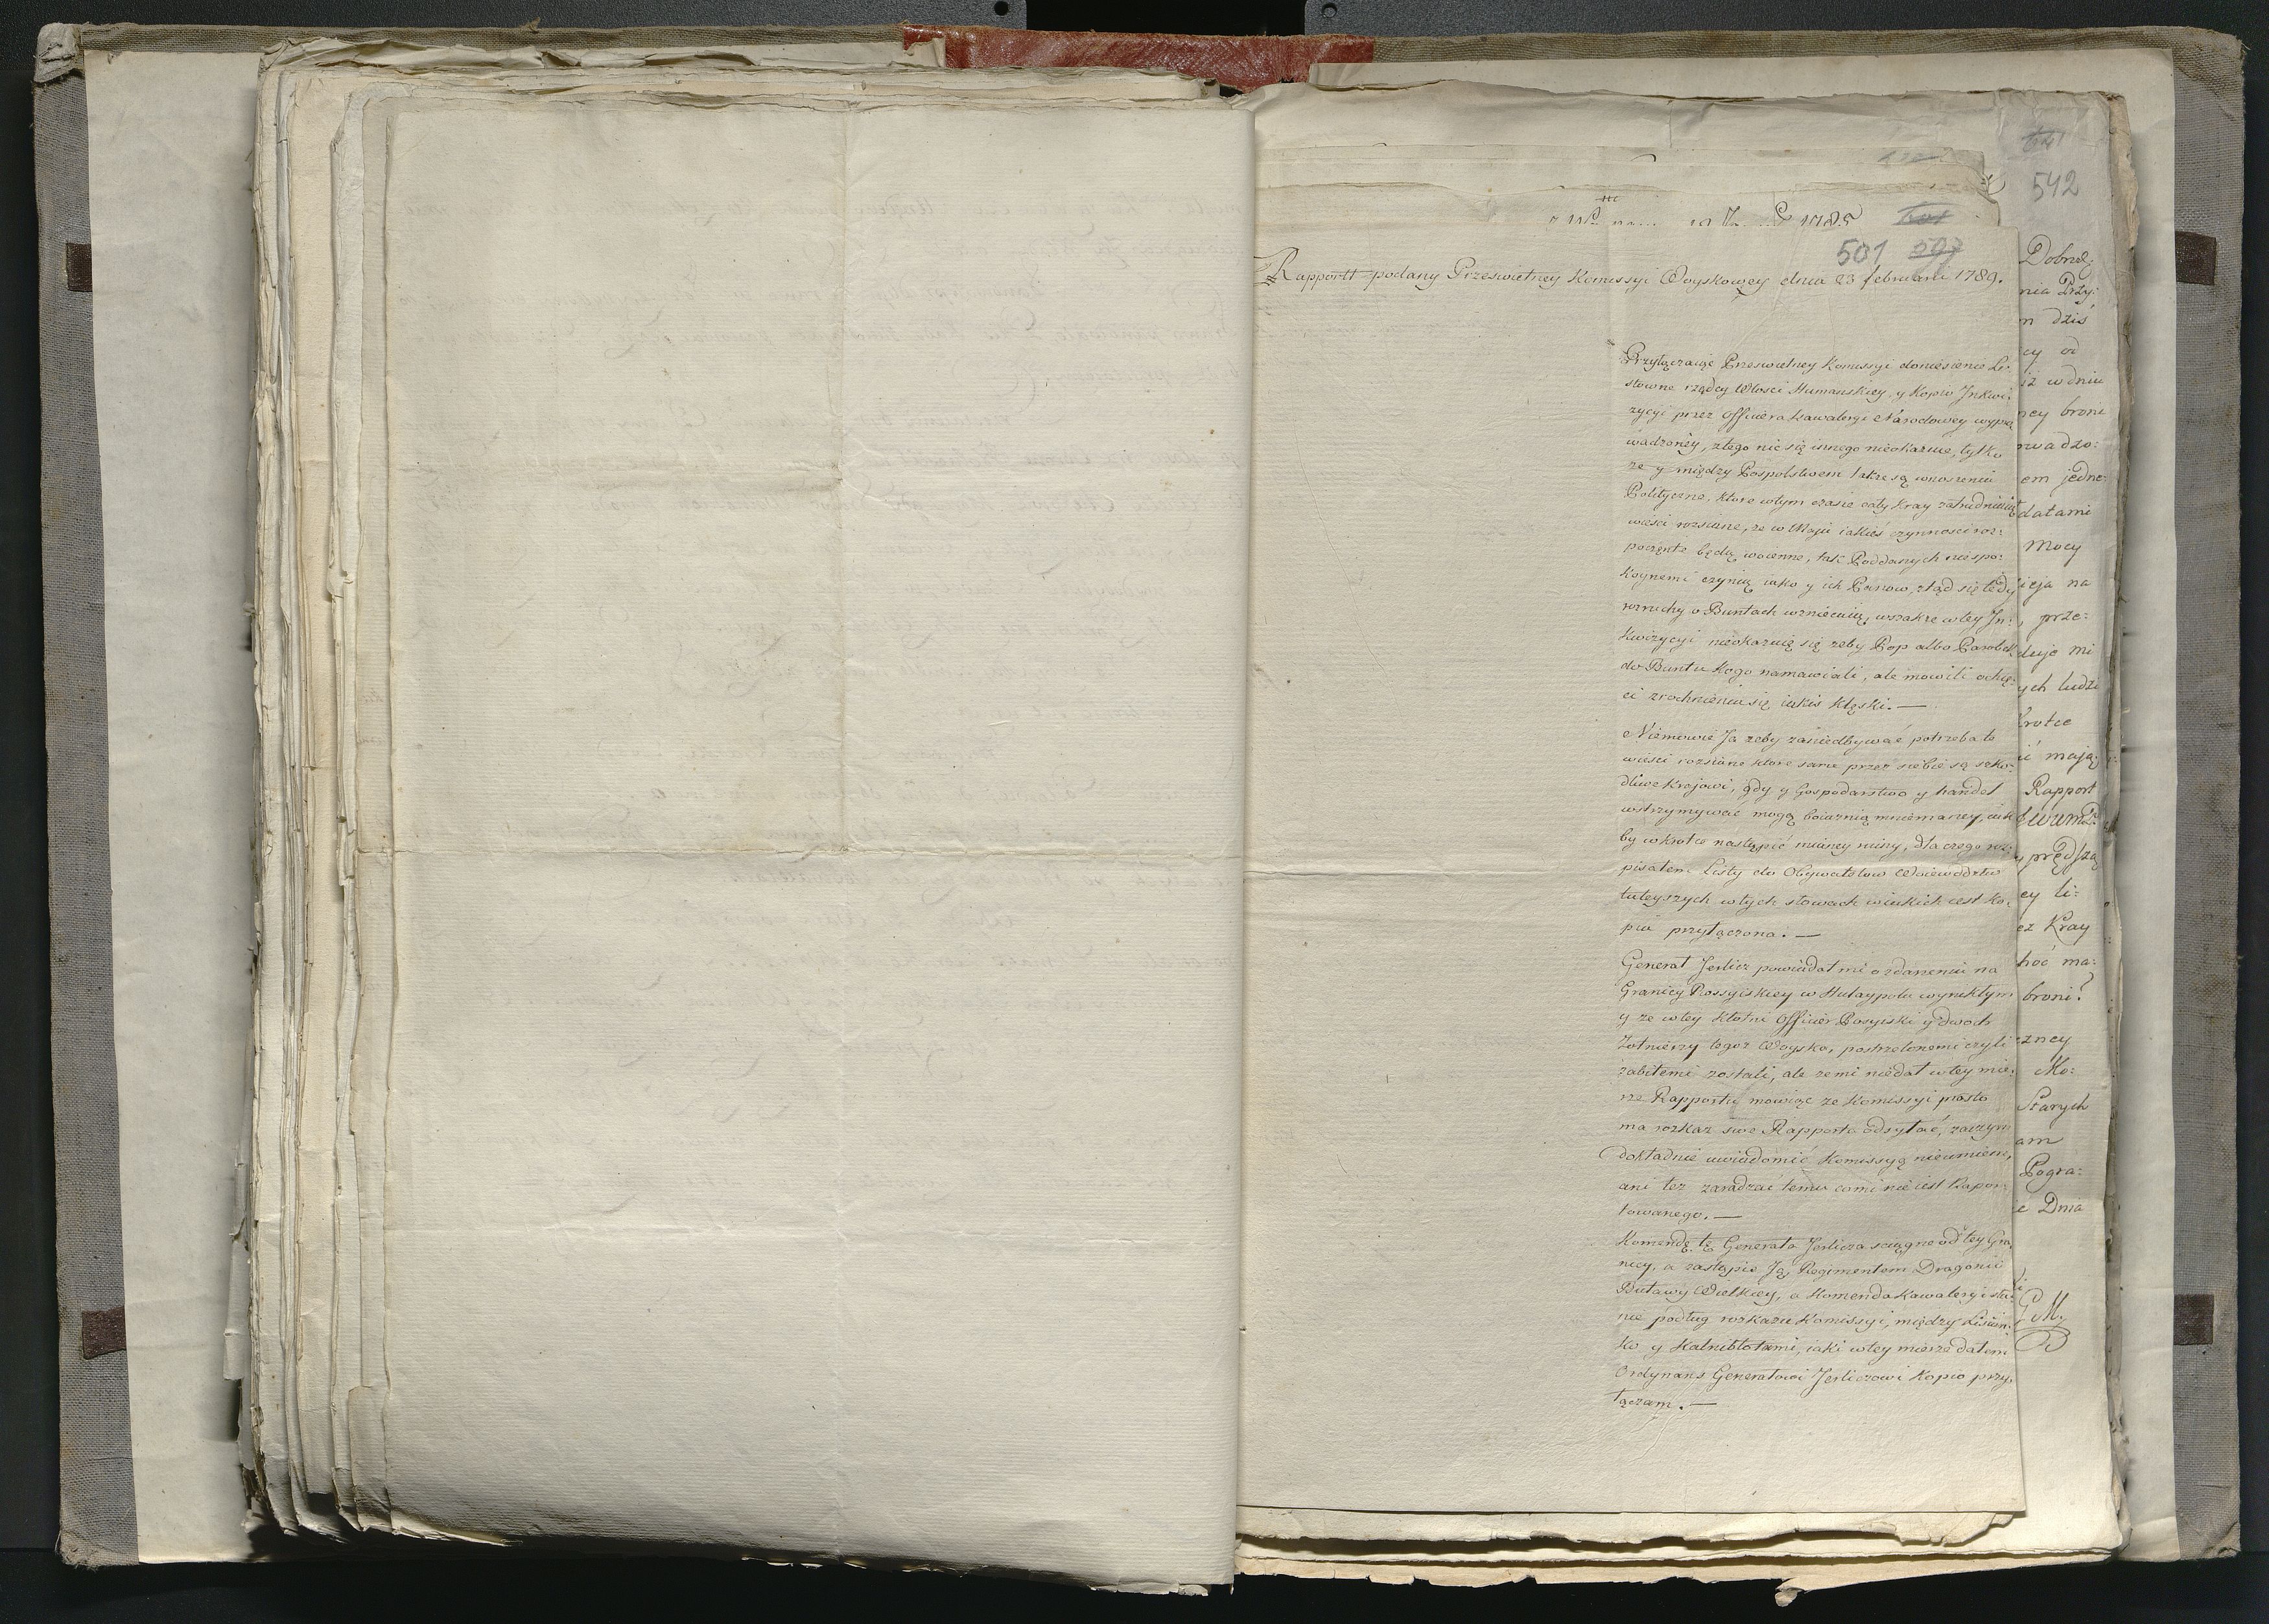 542
1785
501
Rapportt podany Przeswietney Komissyi Woyskowey dnia 23 februarii 1789.
Przyłączaiąc Przeswietney Komissyi doniesienie Li-
stowne rządcy Włosci Humanskiey, y Kopio Inkwi-
zycyi przez officiera kawaleryi Narodowey wypro
wadzoney, ztego nic się innego nieokazuie, tylko
ze y między Pospolstwem takze są wnoszenia
Polityczne, ktore wtym czasie cały Kray zatrudniaią
wiesci rozsiane, ze w Maju iakieś czynnosci roz:
poczęte będą woienne, tak Poddanych niespo:
koynemi czynią iako y ich Panow, ztąd się tedy
rozruchy o Buntach wzniecaią, wszakze wtey In:
kwizycyi nieokazuię się zeby Pop albo Parobek
do Buntu kogo namawiali, ale mowili o chę:
ci iakis klęski. —
Niemowie Ja zeby zaniedbywać potrzeba te
wiesci rozsiane ktore same przez siebie są szko:
dliwe krajowi, gdy y Gospodarstwo y handel
wstrzymywać mogą boiaznią mniemaney, iak
by wkrotce nastąpić mianey ruiny, dla czego roz:
pisałem Listy do Obywatelow Woiewodztw
tuteyszych wtych słowach wiakich iest ko:
pia przyłączona. —
Generał Jerlicz powiadał mi o zdarzeniu na
Granicy Rossyiskiey w Hulaypolu wynikłym
y ze wtey kłotni officier Rosyiski y dwoch
Zołnierzy tegoz Woyska, postrzelonemi czyli
zabitemi zostali, ale zemi niedał wtey mie:
rze Rapportu mowiąc ze Komissyi prosto
ma rozkaz swe Rapporta odsyłać, zaczym
dokładnie uwiadomić Komissyą nieumiem,
ani tez zaradzać temu comi nie iest Rapor
towanego. —
Komendę tę Generała Jerlicza sciągne od tey Gra
nicy, a zastąpie Ją Regimentem Dragonii
Buławy Wielkiey, a Komenda Kawaleryi sta:
nie podług rozkazu Komissyi, między Lisian:
ko y Kalnibłotami, iaki wtey mierze dałem
Ordynans Generałowi Jerliczowi Kopio przy,
łączam. —
Dobrze
nia Przy:
n dziś
cy od
iz w dniu
ney broni
owadzo:
em jedne:
datami
Mocy
icja na
prze:
duje mi
ych ludzi
krotce
ić mają:
Rapport
prędszą
cy li:
ez Kray
hoć ma:
broni?
zney
Mo:
Starych
am
Pogra:
e Dnia
GM